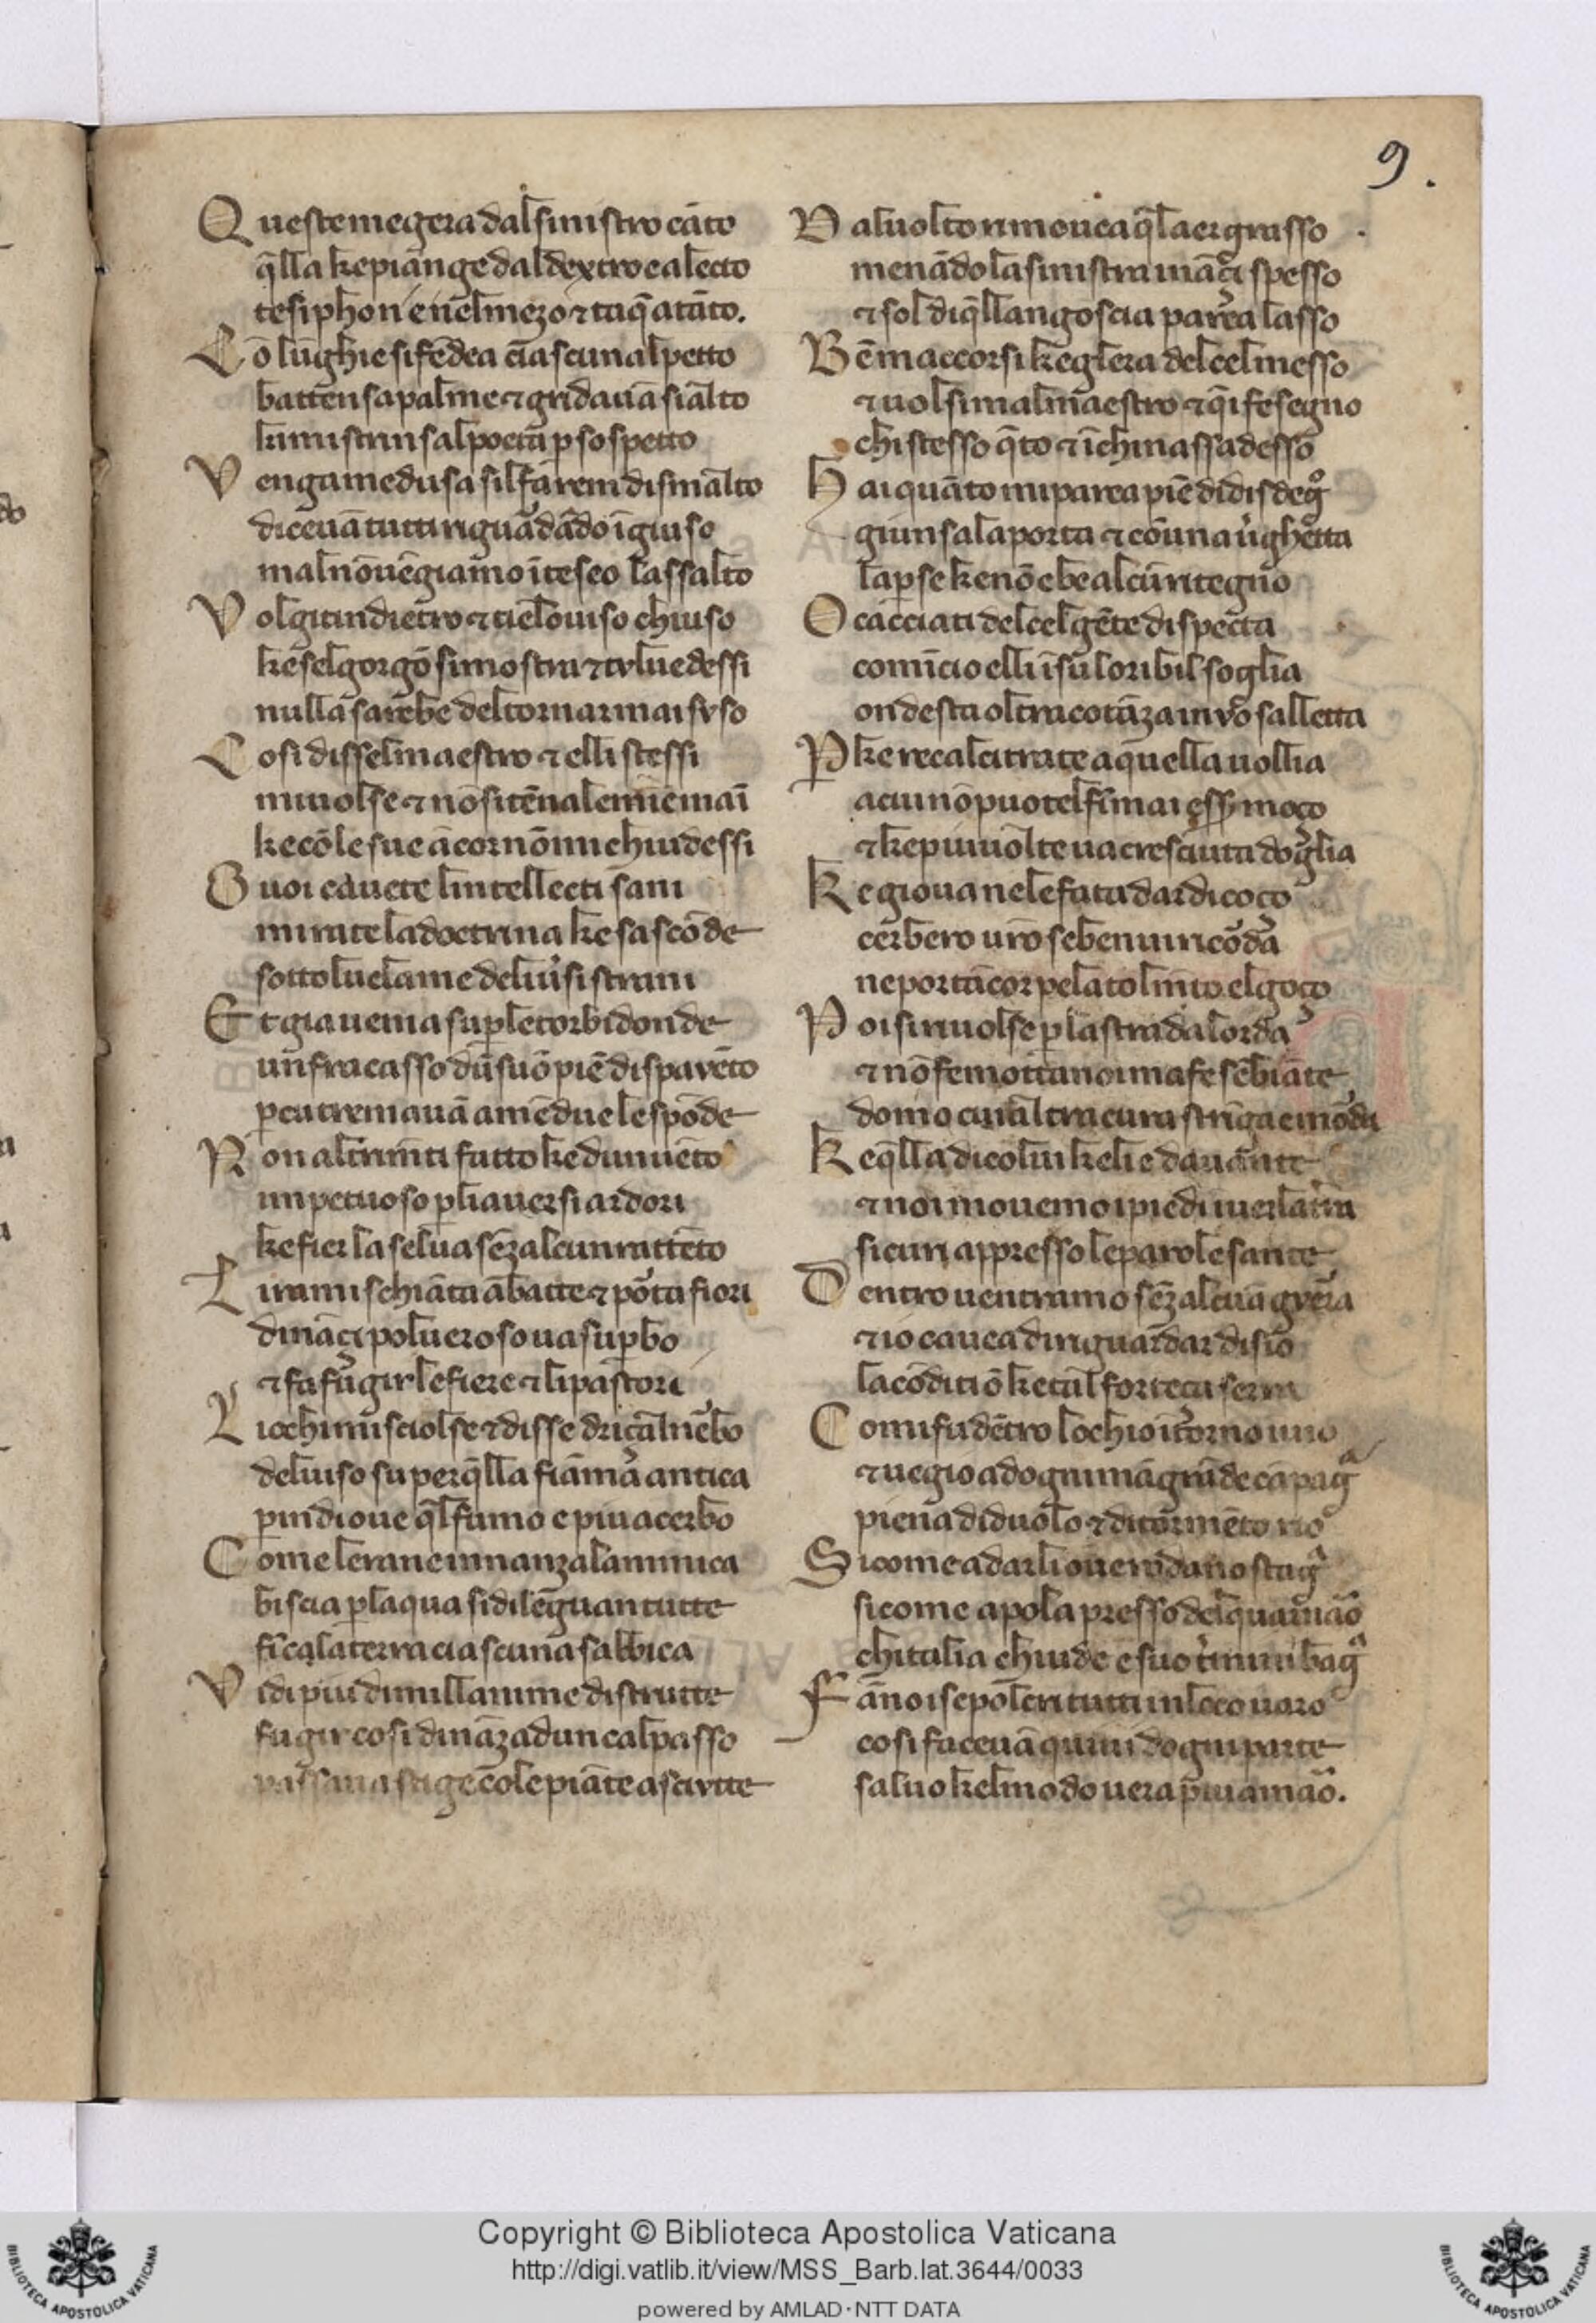 9.
Queste megera dal sinistro cāto
q̄lla ke piange dal dextro e alecto
tesiphon e nel mezo ⁊ taq̄ a tāto.
Cō lūghie si fēdea ciascuna l petto
battensa palme ⁊ gridauā si alto
kimistrinsal poeta p sospetto
Venga medusa sil farem di smalto
diceuā tutti riguādādo ī giuso
mal nō uēgiāmo ī teseo lassalto
Volgiti ndietro ⁊ tielo uiso chiuso
ke sel gorgō si mostra ⁊ tv lue dessi
nulla sarebe del tornar mai svso
Cosi dissel maestro ⁊ elli stessi
mi uolse ⁊ nō si tēna le mie mai
ke cō le sue ācor nō mi chiudessi
O uoi cauete lintelletti sani
mirate la doctrina ke sascōde
sotto l uelame deli uersi strani
Et gia uenia su p le torbidonde
un fracasso dū suō piē di spavēto
p cui tremauā amēdue le spōde
Non altrimēti fatto ke dun uēto
impetuoso p li auersi ardori
ke fier la selua sēz alcun rattēto
Li rami schiāta abatte ⁊ pōta fiori
dināçi poluero so ua supbo
⁊ fa fugir le fiere ⁊ li pastori
Li ochi mi sciolse ⁊ disse driça l nēbo
del uiso su per q̄lla fiāma antica
p indi oue q̄l fumo e piu acerbo
Come le rane innanz a la nimica
biscia p laqua si dileguan tutte
fī ca la terra ciascuna sabbica
Vidi piu di mill anime distrutte
fugir cosi dināz ad un cal passo
passaua stige cō le piāte ascivtte
Dal uolto rimouea q̄l aer grasso
menādo la sinistra ināçi spesso
⁊ sol di q̄ll angoscia parea lasso
Bē maccorsi kegl era del cel messo
⁊ uolsim al maestro ⁊ q̄i fe segno
chi stesso q̄to ⁊ īchinassa desso
Hai quāto mi parea piē di disdegº
giunsa la porta ⁊ cō una ùghetta
lapse ke nō ebe alcū ritegno
O cacciati del cel gēte dispecta
comīcio elli ī su loribil soglia
ondesta oltracotāza in vō salletta
Pke recalcitrate a quella uollia
a cui nō puotel fī mai esser moço
⁊ ke piu uolte ua cresciuta doglia
Ke gioua ne le fata dar di coço
cerbero uro se ben ui ricōda
ne porta īcor pelato l mīto el goço
Poi si riuolse p la strada lorda
⁊ nō fe motto a noi ma fe sēbiāte
domo cui altra cura strīga e mōda
Ke q̄lla di colui ke lie dauante
⁊ noi mouemo i piedi īuer la tra
sicuri appresso le parole sante
Dentro uentramo sēz alcuā gvera
⁊ io cauea di riguardar disio
la cōditiō ke tal forteça serra
Comi fu dētro lochio ītorno īuio
⁊ uegio ad ogni mā grāde cāpagª
piena di duolo ⁊ di tormēto rio
Si come ad arli oue rodano stagª
si come a pola presso del quarnaō
chitalia chiude e suo t̓mini bagª
Fāno i sepolcri tutti in loco uaro
cosi faceuā quiui dogni parte
saluo kel modo u era p̄iu amaō.
Copyright © Biblioteca Apostolica Vaticana
http://digi.vatlib.it/view/MSS_Barb.lat.3644/0033
powered by AMLAD·NTT DATA
BIBLIOTECA APOSTOLICA VATICANA
BIBLIOTECA APOSTOLICA VATICANA